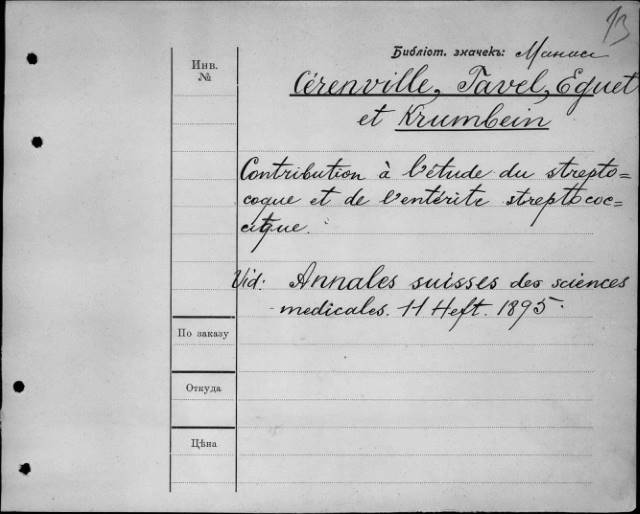 13
Библіот. значекъ: Манасс
Инв.
№
Cérenville, Tavel, Eguet
et Krumbein
Contribution à l'étude du strepto=
coque et de l'entérite streptococ=
cique.
Vid: Annales suisses des sciences
medicales. 11 Heft. 1895.
По заказу
Откуда
Цѣна